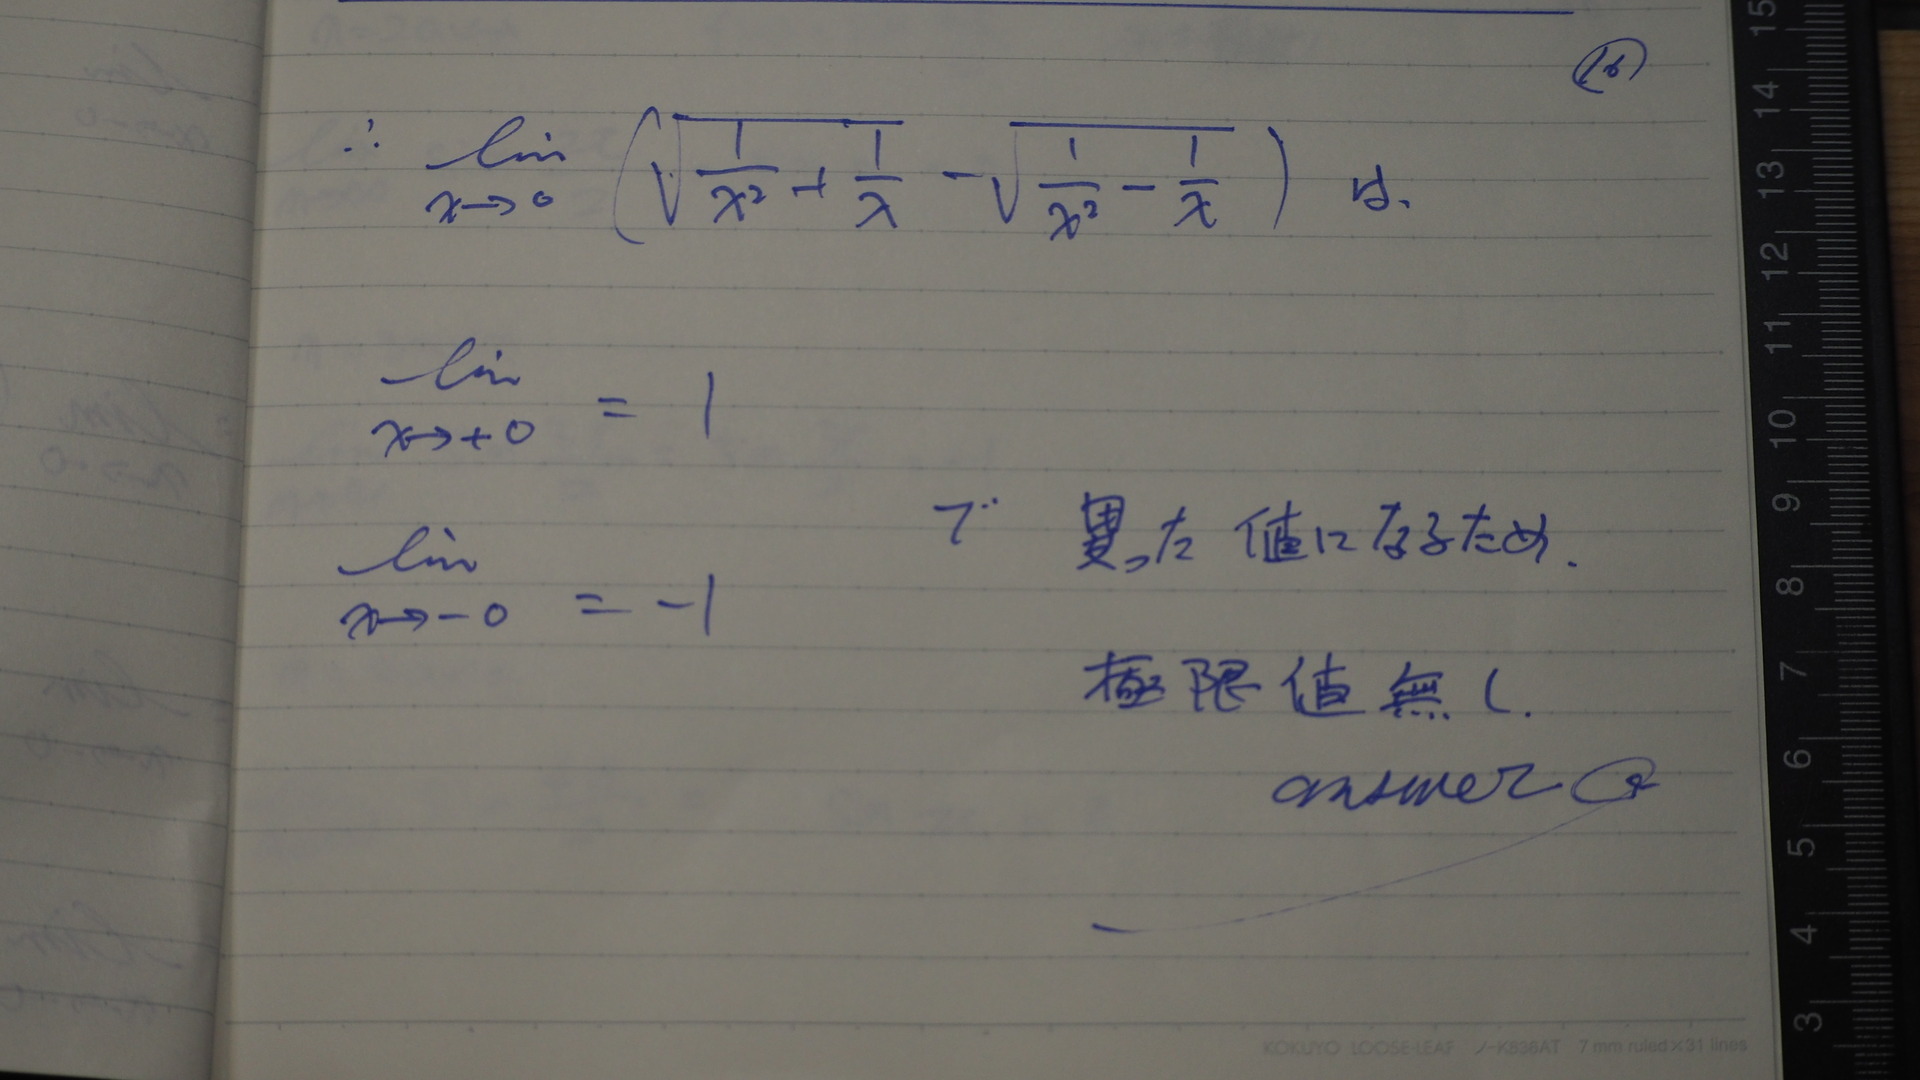 (16)
∴ lim x→0 (√(1/x² + 1/x) - √(1/x² - 1/x)) は、
lim x→+0 = 1
lim x→-0 = -1
で 異った値になるため.
極限値無し.
answer
KOKUYO LOOSE-LEAF ノ-K836AT 7 mm ruled×31 lines
15
14
13
12
11
10
9
8
7
6
5
4
3